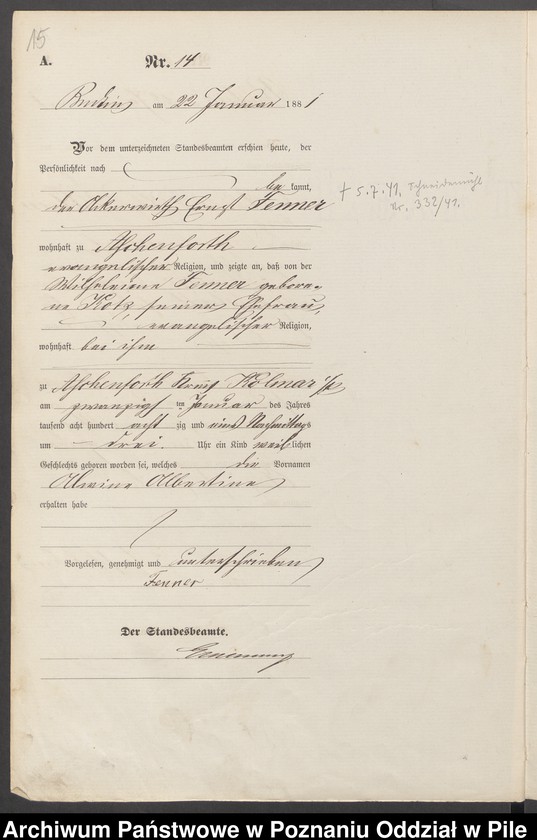 15
A.
Nr. 14
am 22 Januar 1881
Vor dem unterzeichneten Standesbeamten erschien heute, der
Persönlichkeit nach
be kannt,
der Ackerwirth Ernst Fenner
† 5.7.41. Schneidemühl
Nr. 332/41.
wohnhaft zu Aschenforth
evangelischer Religion, und zeigte an, daß von der
Wilhelmine Fenner gebore-
ne Kotz, seiner Ehefrau,
evangelischer Religion,
wohnhaft bei ihm
zu Aschenforth Kreis Kolmar i/P
am zwanzigsten Januar des Jahres
tausend acht hundert acht zig und eins Nachmittags
um drei Uhr ein Kind weib lichen
Geschlechts geboren worden sei, welches die Vornamen
Alwine Albertine
erhalten habe
Vorgelesen, genehmigt und unterschrieben
Fenner
Der Standesbeamte.
Archiwum Państwowe w Poznaniu Oddział w Pile